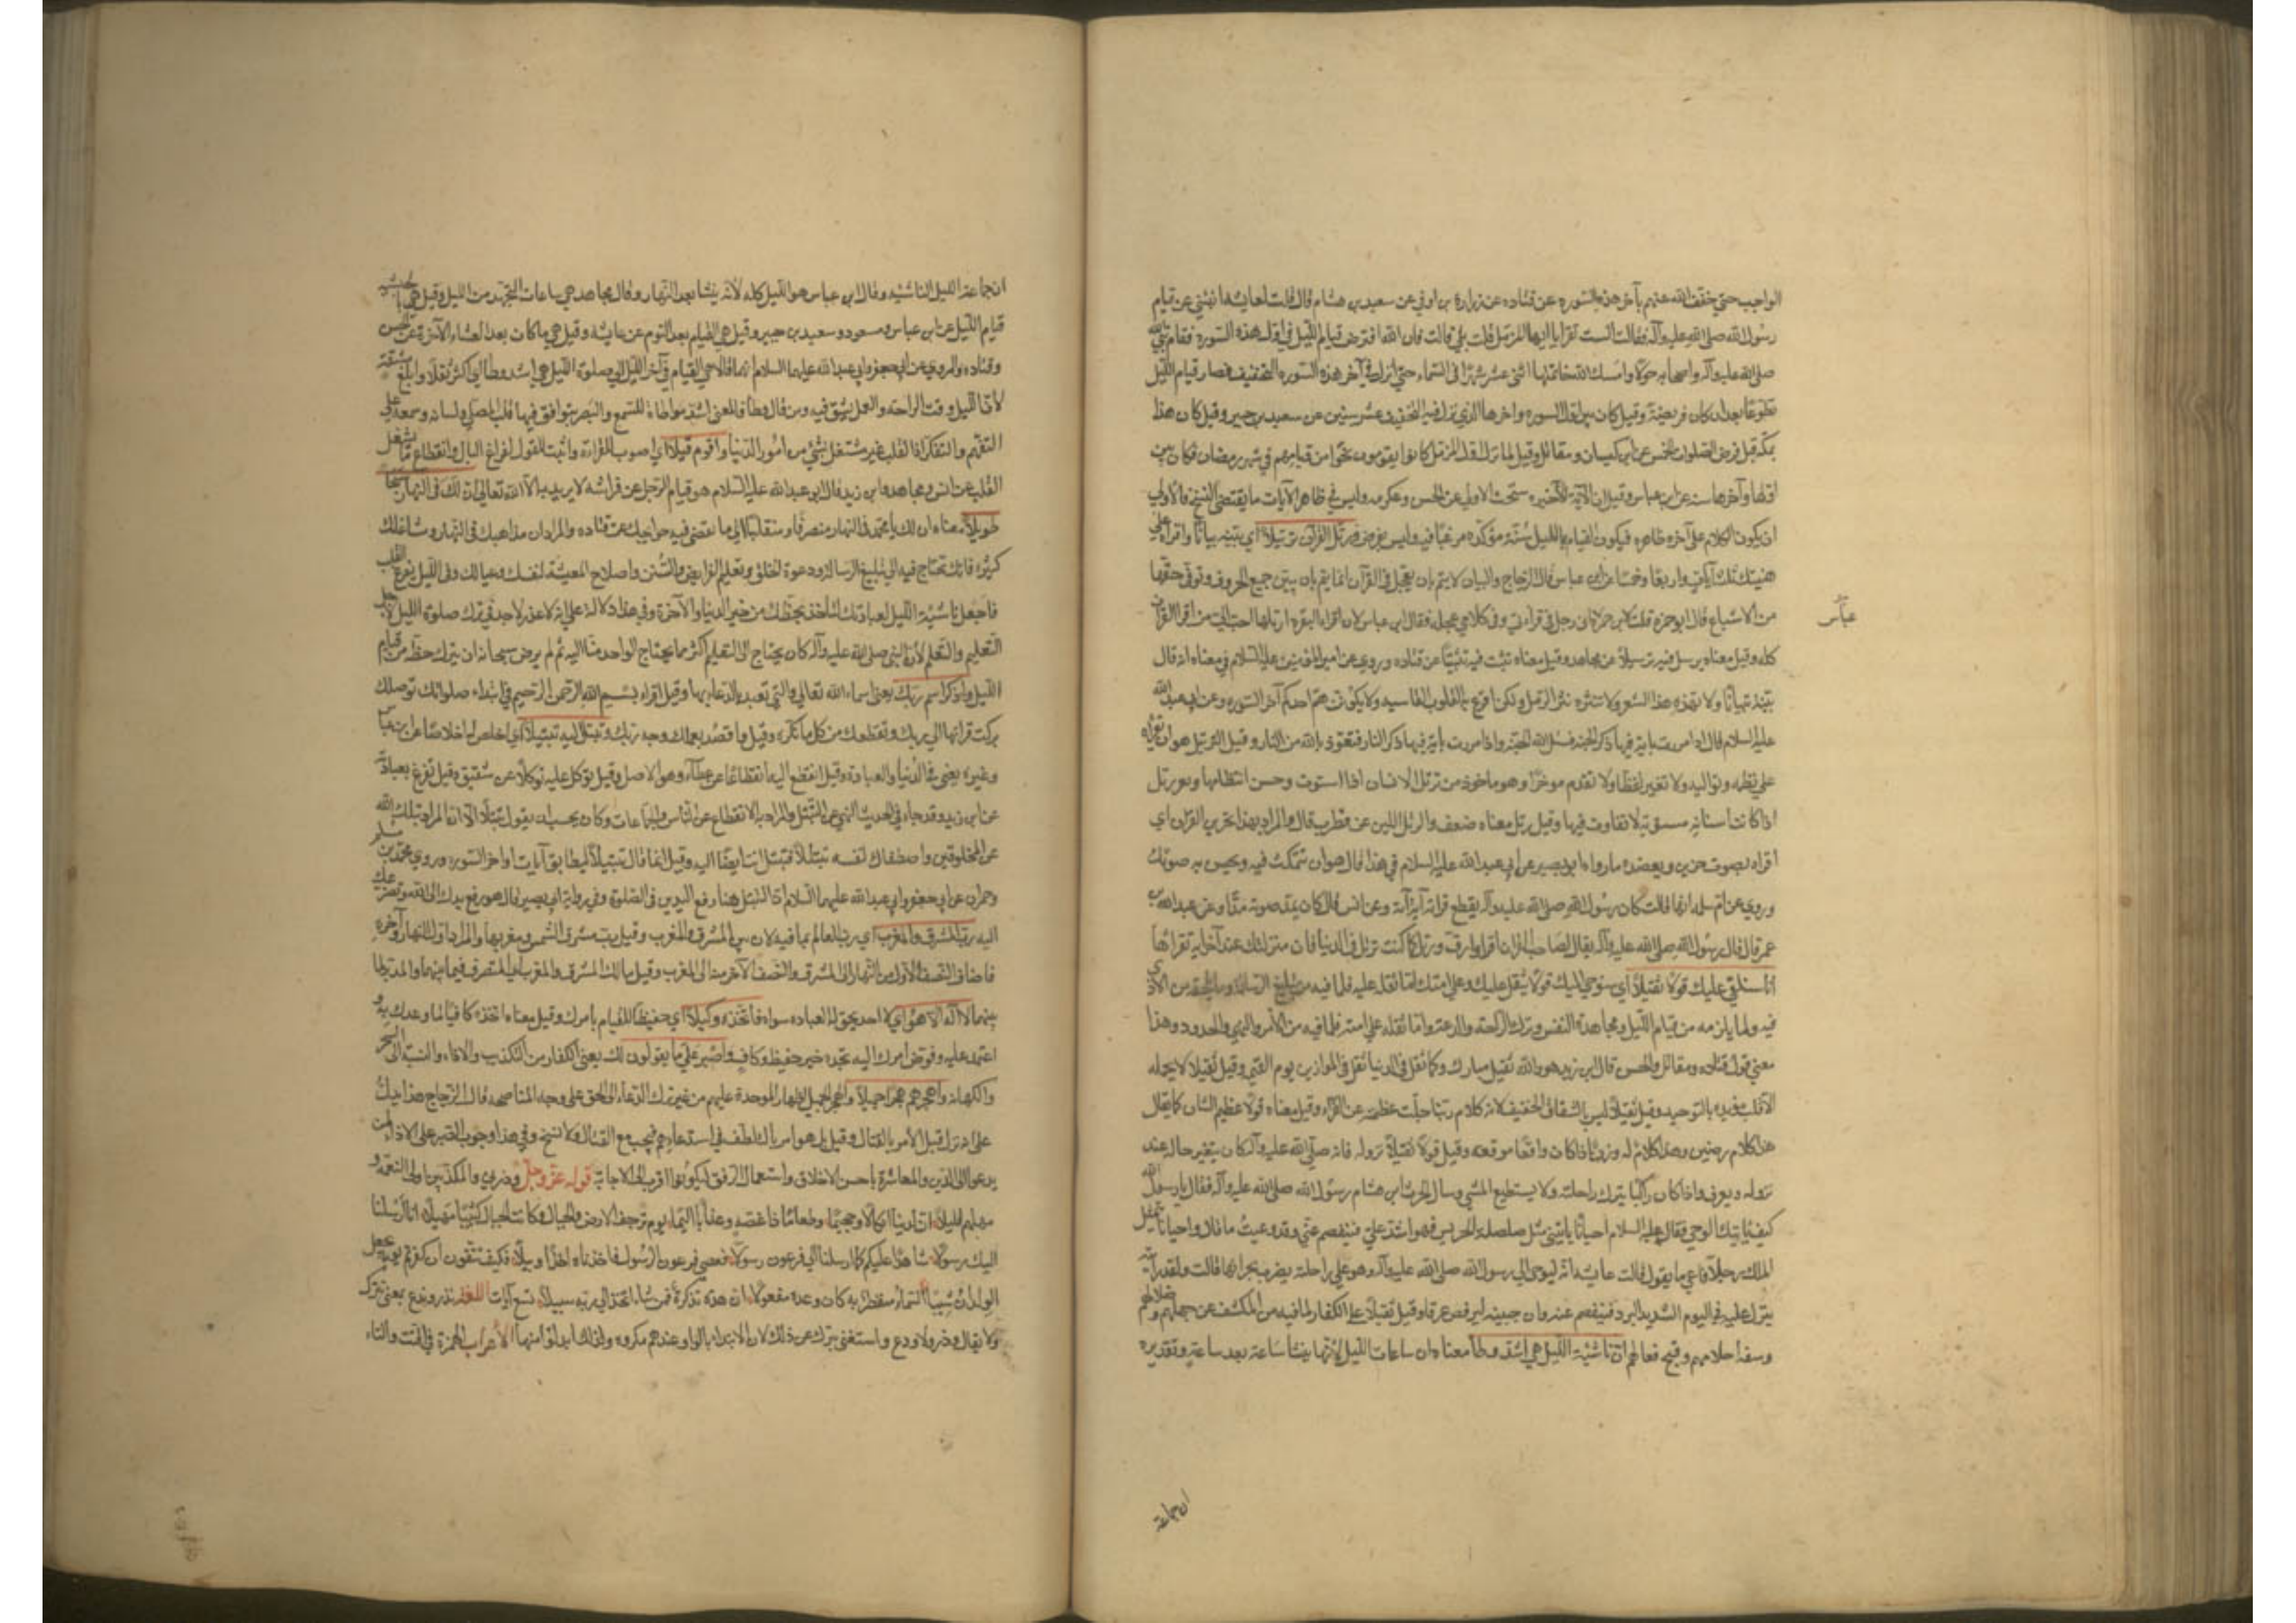 الواجب حتى خفف الله عنهم بآخر هذه السورة عن قتاده عن زرارة بن اوفى عن سعيد بن هشام قال قلت لعايشه انبئني عن قيام
رسول الله صلى الله عليه وآله فقالت الست تقرا يا ايها المزمل قلت بلى قالت فان الله افترض قيام الليل في اول هذه السورة فقام نبي الله
صلى الله عليه وآله واصحابه حولا وامسك الله خاتمتها اثنى عشر شهرا في السماء حتى انزل في آخر هذه السوره التخفيف فصار قيام الليل
تطوعا بعد ان كان فريضة وقيل كان بين اول السوره واخرها الذي نزل فيه التخفيف عشر سنين عن سعيد بن جبير وقيل كان هذا
بمكة قبل فرض الصلوات الخمس عن ابن كيسان ومقاتل وقيل لما نزل اول المزمل كانوا يقومون نحوا من قيامهم في شهر رمضان فكان بين
اولها وآخرها سنة عن ابن عباس وقيل ان الآية الاخيره نسخت الاولى عن الحسن وعكرمه وليس في ظاهر الآيات ما يقتضى النسخ فالاولى
ان يكون الكلام على آخره ظاهره فيكون القيام بالليل سنة مؤكده مرغبا فيه وليس بفرض ورتل القرآن ترتيلا اي بينه بيانا واقراه على
هنيتك ثلث آيات واربعا وخمسا عن ابن عباس قال الزجاج والبيان لا يتم بان يعجل في القرآن انما يتم بان يبين جميع الحروف وتوفى حقها
من الاشباع قال ابو حمزه قلت لابن عباس انى رجل في قراءتي وفى كلامي عجله فقال ابن عباس لان اقراء البقره ارتلها احب الي من اقرا القران
عباس
كله وقيل معناه ترسل فيه ترسيلا عن مجاهد وقيل معناه تثبت فيه تثبيتا عن قتاده وروي عن امير المؤمنين عليه السلام في معناه انه قال
بينه تبيانا ولا تهذه هذ الشعر ولا تنثره نثر الرمل ولكن اقرع به القلوب القاسيه ولا يكونن هم احدكم آخر السوره وعن ابى عبد الله
عليه السلام قال اذا مررت باية فيها ذكر الجنه فسل الله الجنة واذا مررت باية فيها ذكر النار فتعوذ بالله من النار وقيل الترتيل هو ان تقراه
على نظمه وتواليه ولا تغير لفظا ولا تقدم موخرا وهو ماخوذ من ترتل الاسنان اذا استوت وحسن انتظامها وثغر رتل
اذا كانت اسنانه مستويه لا تفاوت فيها وقيل رتل معناه ضعف والرتل اللين عن قطرب قال والمراد بهذا تحزين القران اي
اقراه بصوت حزين ويعضده ما رواه ابو بصير عن ابى عبد الله عليه السلام في هذا قال هو ان تتمكث فيه وتحسن به صوتك
وروي عن ام سلمه انها قالت كان رسول الله صلى الله عليه وآله يقطع قراءته آية آية وعن انس قال كان يمد صوته مدا وعن عبد الله بن
عمر قال قال رسول الله صلى الله عليه وآله يقال لصاحب القران اقرا وارق ورتل كما كنت ترتل في الدنيا فان منزلتك عند آخر آية تقراها
انا سنلقي عليك قولا ثقيلا اي سنوحي اليك قولا يثقل عليك وعلى امتك اما ثقله عليه فلما فيه من تبليغ الرسالة وما يلحقه من الاذى
فيه ولما يلزمه من قيام الليل ومجاهدة النفس وترك الراحة والدعة واما ثقله على امته فلما فيه من الامر والنهي والحدود وهذا
معنى قول قتاده ومقاتل والحسن قال ابن زيد هو والله ثقيل مبارك وكما ثقل في الدنيا ثقل في الموازين يوم القيمة وقيل ثقيلا لا يحمله
الا قلب مؤيد بالتوحيد وقيل ثقيلا ليس بالسفساف الخفيف لانه كلام ربنا جلت عظمته عن الفراء وقيل معناه قولا عظيم الشان كما يقال
هذا كلام رصين وهذا الكلام له وزن اذا كان واقعا موقعه وقيل قولا ثقيلا نزوله فانه صلى الله عليه وآله كان يتغير حاله عند
نزوله ويعرق واذا كان راكبا يبرك راحلته ولا يستطيع المشي وسال الحرث ابن هشام رسول الله صلى الله عليه وآله فقال يا رسول الله
كيف ياتيك الوحي فقال عليه السلام احيانا ياتينى مثل صلصلة الجرس فهو اشد علي فيفصم عني وقد وعيت ما قال واحيانا يتمثل
الملك رجلا فاعي ما يقول قالت عايشه انه ليوحى الى رسول الله صلى الله عليه وآله وهو على راحلته يضرب بجرانها قالت ولقد رايته
ينزل عليه في اليوم الشديد البرد فيفصم عنه وان جبينه ليرفض عرقا وقيل ثقيلا على الكفار لما فيه من الكشف عن جهلهم وضلالهم
وسفه احلامهم وقبح فعالهم ان ناشئة الليل هي اشد وطأ معناه ان ساعات الليل لانها ينشأ ساعة بعد ساعة وتقديره
ان ساعة
ان ساعة الليل الناشئه وقال ابن عباس هو الليل كله لانه ينشأ بعد النهار وقال مجاهد هي ساعات التهجد من الليل وقيل هي بالحبشيه
قيام الليل عن ابن عباس ومسعود وسعيد بن جبير وقيل هي القيام بعد النوم عن عايشه وقيل هي ما كان بعد العشاء الآخره عن الحسن
وقتاده والمروي عن ابى جعفر وابى عبد الله عليهما السلام انهما قالا هي القيام في آخر الليل الى صلوة الليل هي اشد وطأ اى اكثر ثقلا وابلغ مشقة
لان الليل وقت الراحه والعمل يشق فيه ومن قال وطاء فالمعنى اشد مواطاة للسمع والبصر يتوافق فيها قلب المصلي ولسانه وسمعه على
التفهم والتفكر اذ القلب غير مشتغل بشئ من امور الدنيا واقوم قيلا اي اصوب للقراءة واثبت للقول لفراغ البال وانقطاع ما يشغل
القلب عن انس ومجاهد وابن زيد قال ابو عبد الله عليه السلام هو قيام الرجل عن فراشه لا يريد به الا الله تعالى ان لك في النهار سبحا
طويلا معناه ان لك يا محمد في النهار منصرفا ومنقلبا الى ما تقضى فيه حوايجك عن قتاده والمراد ان مذاهبك في النهار ومشاغلك
كثيرة فانك تحتاج فيه الى تبليغ الرسالة ودعوة الخلق وتعليم الفرايض والسنن واصلاح المعيشة لنفسك وعيالك وفى الليل يفرغ القلب
فاجعل ناشئة الليل لعبادتك لتاخذ بحظك من خير الدنيا والآخرة وفى هذا دلالة على انه لا عذر لاحد في ترك صلوة الليل لاجل
التعليم والتعلم لان النبى صلى الله عليه وآله كان يحتاج الى التعليم اكثر مما يحتاج الواحد منا اليه ثم لم يرض سبحانه ان يترك حظه من قيام
الليل واذكر اسم ربك يعنى اسماء الله تعالى التي تعبد بالدعاء بها وقيل اقراء بسم الله الرحمن الرحيم في ابتداء صلواتك توصلك
بركت قراتها الى ربك وتقطعك من كل ما سواه وقيل واقصد بعملك وجه ربك وتبتل اليه تبتيلا اي اخلص له اخلاصا عن ابن عباس
وغيره يعنى في الدنيا والعبادة وقيل انقطع اليه انقطاعا عن عطاء وهو الاصل وقيل توكل عليه توكلا عن شقيق وقيل تفرغ لعبادته
عن ابن زيد وقد جاء في الحديث النهي عن التبتل والمراد به الانقطاع عن الناس والجماعات وكان يجب ان يقول تبتلا الا ان المراد بتلك الله
عن المخلوقين واصطفاك لنفسه تبتيلا فتبتل انت ايضا اليه وقيل انما قال تبتيلا ليطابق آيات اواخر السوره وروي محمد بن مسلم
وحمران عن ابى جعفر وابى عبد الله عليهما السلام ان التبتل هنا رفع اليدين في الصلوة وفى رواية ابى بصير قال هو رفع يدك الى الله وتضرعك
اليه رب المشرق والمغرب اي رب العالم بما فيه لانه بين المشرق والمغرب وقيل رب مشرق الشمس ومغربها والمراد اول النهار وآخره
فاضاف النصف الاول من النهار الى المشرق والنصف الآخر منه الى المغرب وقيل مالك المشرق والمغرب اي المتصرف فيما بينهما والمدبر لما
بينهما لا اله الا هو اي لا احد يحق له العباده سواه فاتخذه وكيلا اي حفيظا للقيام بامرك وقيل معناه اتخذه كافيا لما وعدك به و
اعتمد عليه وفوض امرك اليه تجده خير حفيظ وكاف واصبر على ما يقولون لك يعنى الكفار من التكذيب والاذاء والنسبة الى السحر
والكهانه واهجرهم هجرا جميلا والهجر الجميل اظهار الموجدة عليهم من غير ترك الدعاء الى الحق على وجه المناصحه قال الزجاج هذا يدل
على انه نزل قبل الامر بالقتال وقيل بل هو امر بالتلطف في استدعائهم فيجب مع القتال ولا نسخ وفى هذا وجوب الصبر على الاذاء لمن
يدعو الى الدين والمعاشرة باحسن الاخلاق واستعمال الرفق ليكونوا اقرب الى الاجابة قوله عز وجل وذرني والمكذبين اولى النعمه و
مهلهم قليلا ان لدينا انكالا وجحيما وطعاما ذا غصه وعذابا اليما يوم ترجف الارض والجبال وكانت الجبال كثيبا مهيلا انا ارسلنا
اليك رسولا شاهدا عليكم كما ارسلنا الى فرعون رسولا فعصى فرعون الرسول فاخذناه اخذا وبيلا فكيف تتقون ان كفرتم يوما يجعل
الولدان شيبا السماء منفطر به كان وعده مفعولا ان هذه تذكرة فمن شاء اتخذ الى ربه سبيلا تسع آيات اللغة يذر ويدع بمعنى يترك
ولا يقال وذر ولا ودع واستغنى بترك عن ذلك لان الابتداء بالواو عندهم مكروه ولذلك ابدلوا منها الاعراب الهمزة في اقتت والتاء